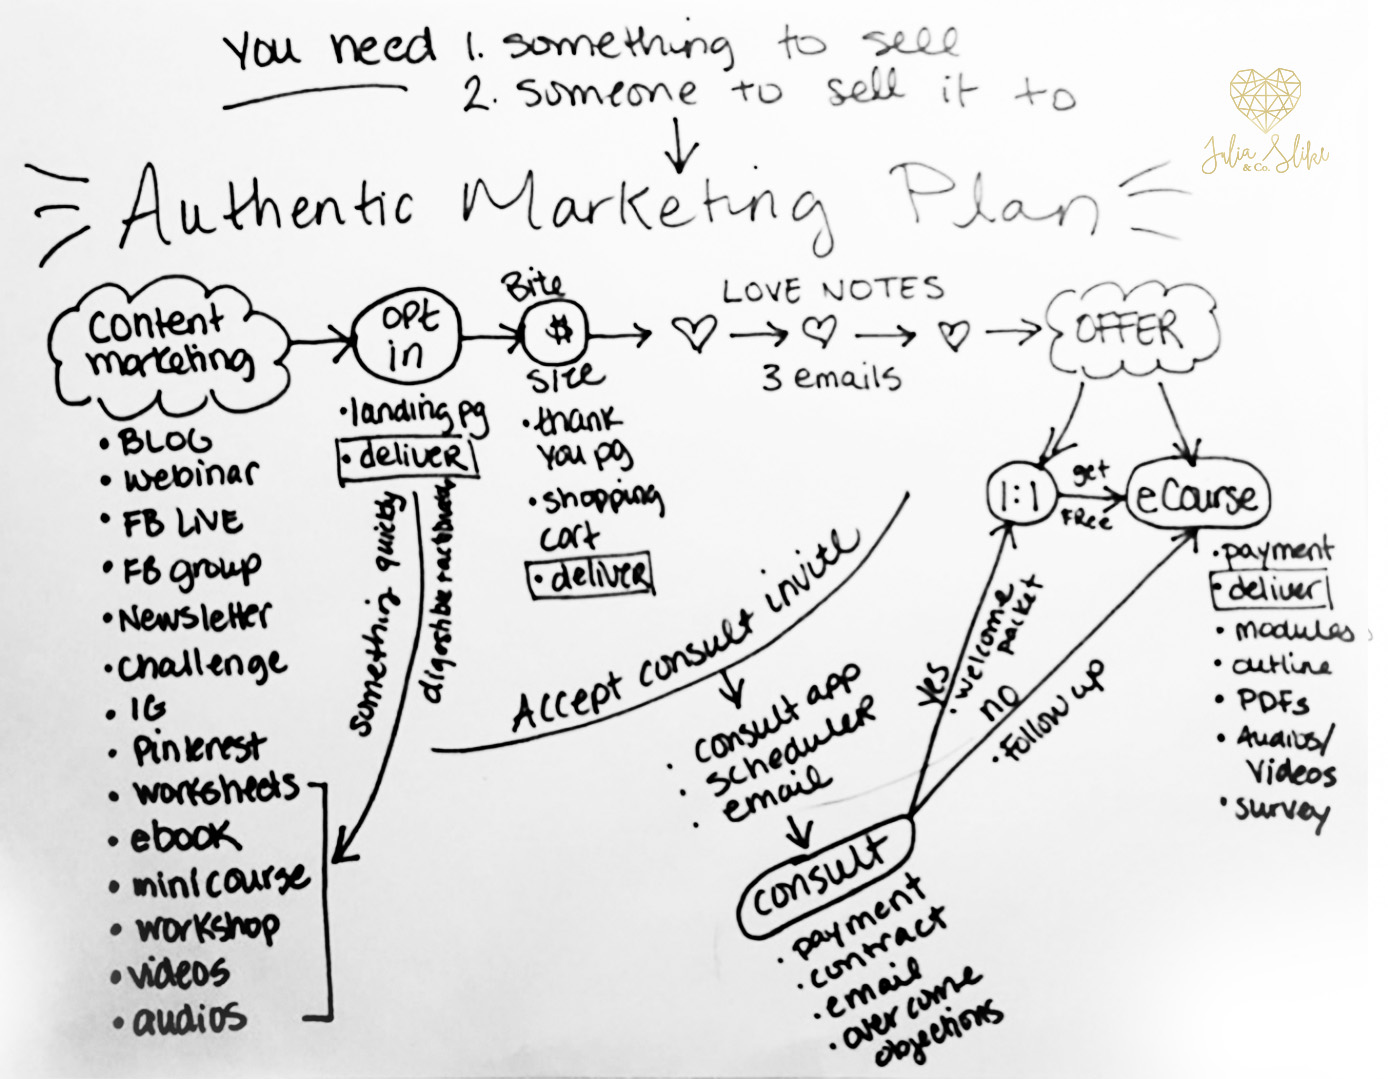 You need 1. something to sell
2. someone to sell it to
Julia Sliki
& Co.
Authentic Marketing Plan
content
marketing
• BLOG
• webinar
• FB LIVE
• FB group
• Newsletter
• challenge
• IG
• Pinterest
• worksheets
• ebook
• minicourse
• workshop
• videos
• audios
opt
in
• landing pg
• deliver
something quickly
digestible
Bite
$
size
• thank
you pg
• shopping
cart
• deliver
LOVE NOTES
3 emails
OFFER
1:1
get
FRee
eCourse
• payment
• deliver
• modules
• outline
• PDFs
• Audios/
Videos
• survey
Accept consult invite
• consult app
• scheduler
• email
consult
• payment
• contract
• email
• over come
objections
yes
• welcome
packet
no
• Follow up